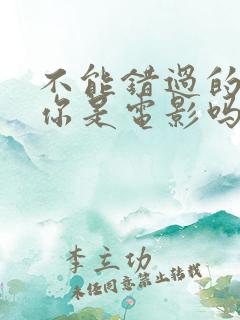 不能错过的
你是电影吗
李立功
未经同意禁止转载